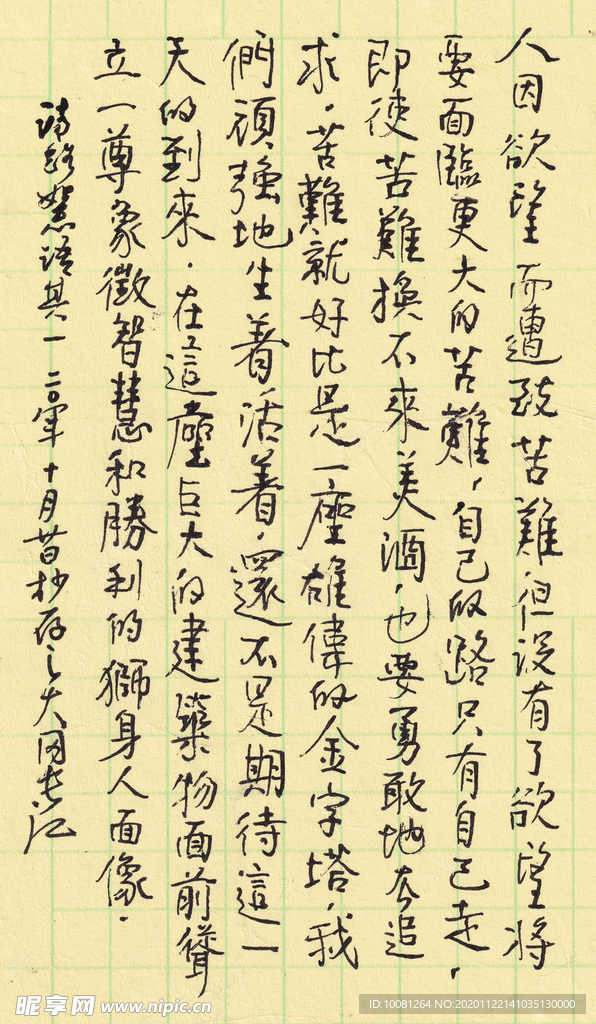 人因欲望而遭致苦難但沒有了欲望將
要面臨更大的苦難,自己的路只有自己走,
即使苦難換不來美酒,也要勇敢地去追
求.苦難就好比是一座雄偉的金字塔,我
們頑強地生着活着,還不是期待這一
天的到來.在這座巨大的建築物面前聳
立一尊象徵智慧和勝利的獅身人面像.
慧語其一 二〇〇年十月昔日抄存之大同
昵享网 www.nipic.cn
ID:10081264 NO:20201122141035130000